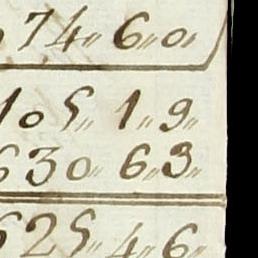 74„ 6„ 0„
105„ 1„ 9„
630„ 6„ 3„
525„ 4„ 6„